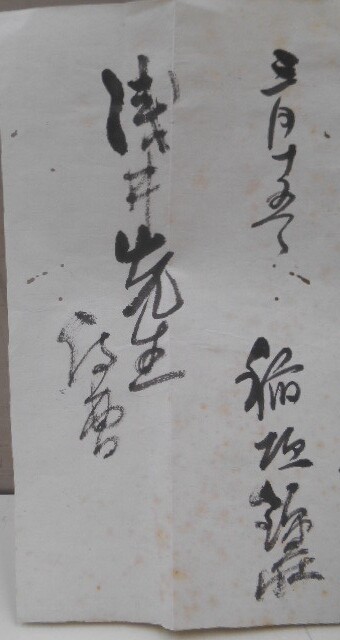 三月十五日
稲垣鎌荘
浅井先生
侍曹